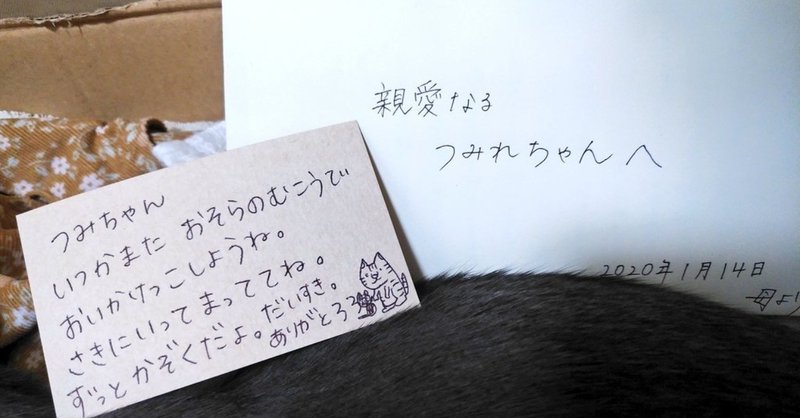 親愛なる
つみれちゃんへ
2020年1月14日
母より
つみちゃん
いつかまた おそらのむこうで
おいかけっこしようね。
さきにいってまっててね。
ずっとかぞくだよ。だいすき。
ありがとう